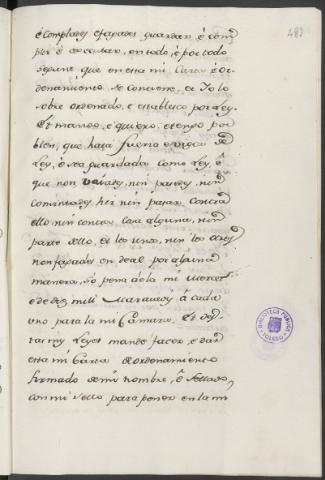 483
é complades é fagades guardar é com
plir é executar, en todo, é por todo
segunt que en esta mi Carta é Or-
denamiento se contiene, ca Yo lo
sobre ordenado, e establesco por Ley.
Et mando, é quiero, etengo por
bien, que haya fuerza é vigor de
Ley, é sea guardada como Ley é
que non vaiades, nin pasedes, nin
consintades, hir nin pasar contra
ello nin contra cosa alguna, nin
parte dello, et los unos, nin los otros
non fagades en deal por alguna
manera, so pena de la mi merced
e de diez mill maravedis á cada
uno para la mi Camara. Et des-
tas mis Leyes mandé facer, e dar
esta mi Carta de Ordenamiento
firmado de mi nombre, é sellado,
con mi sello para poner en la mi
BIBLIOTECA PUBLICA
TOLEDO